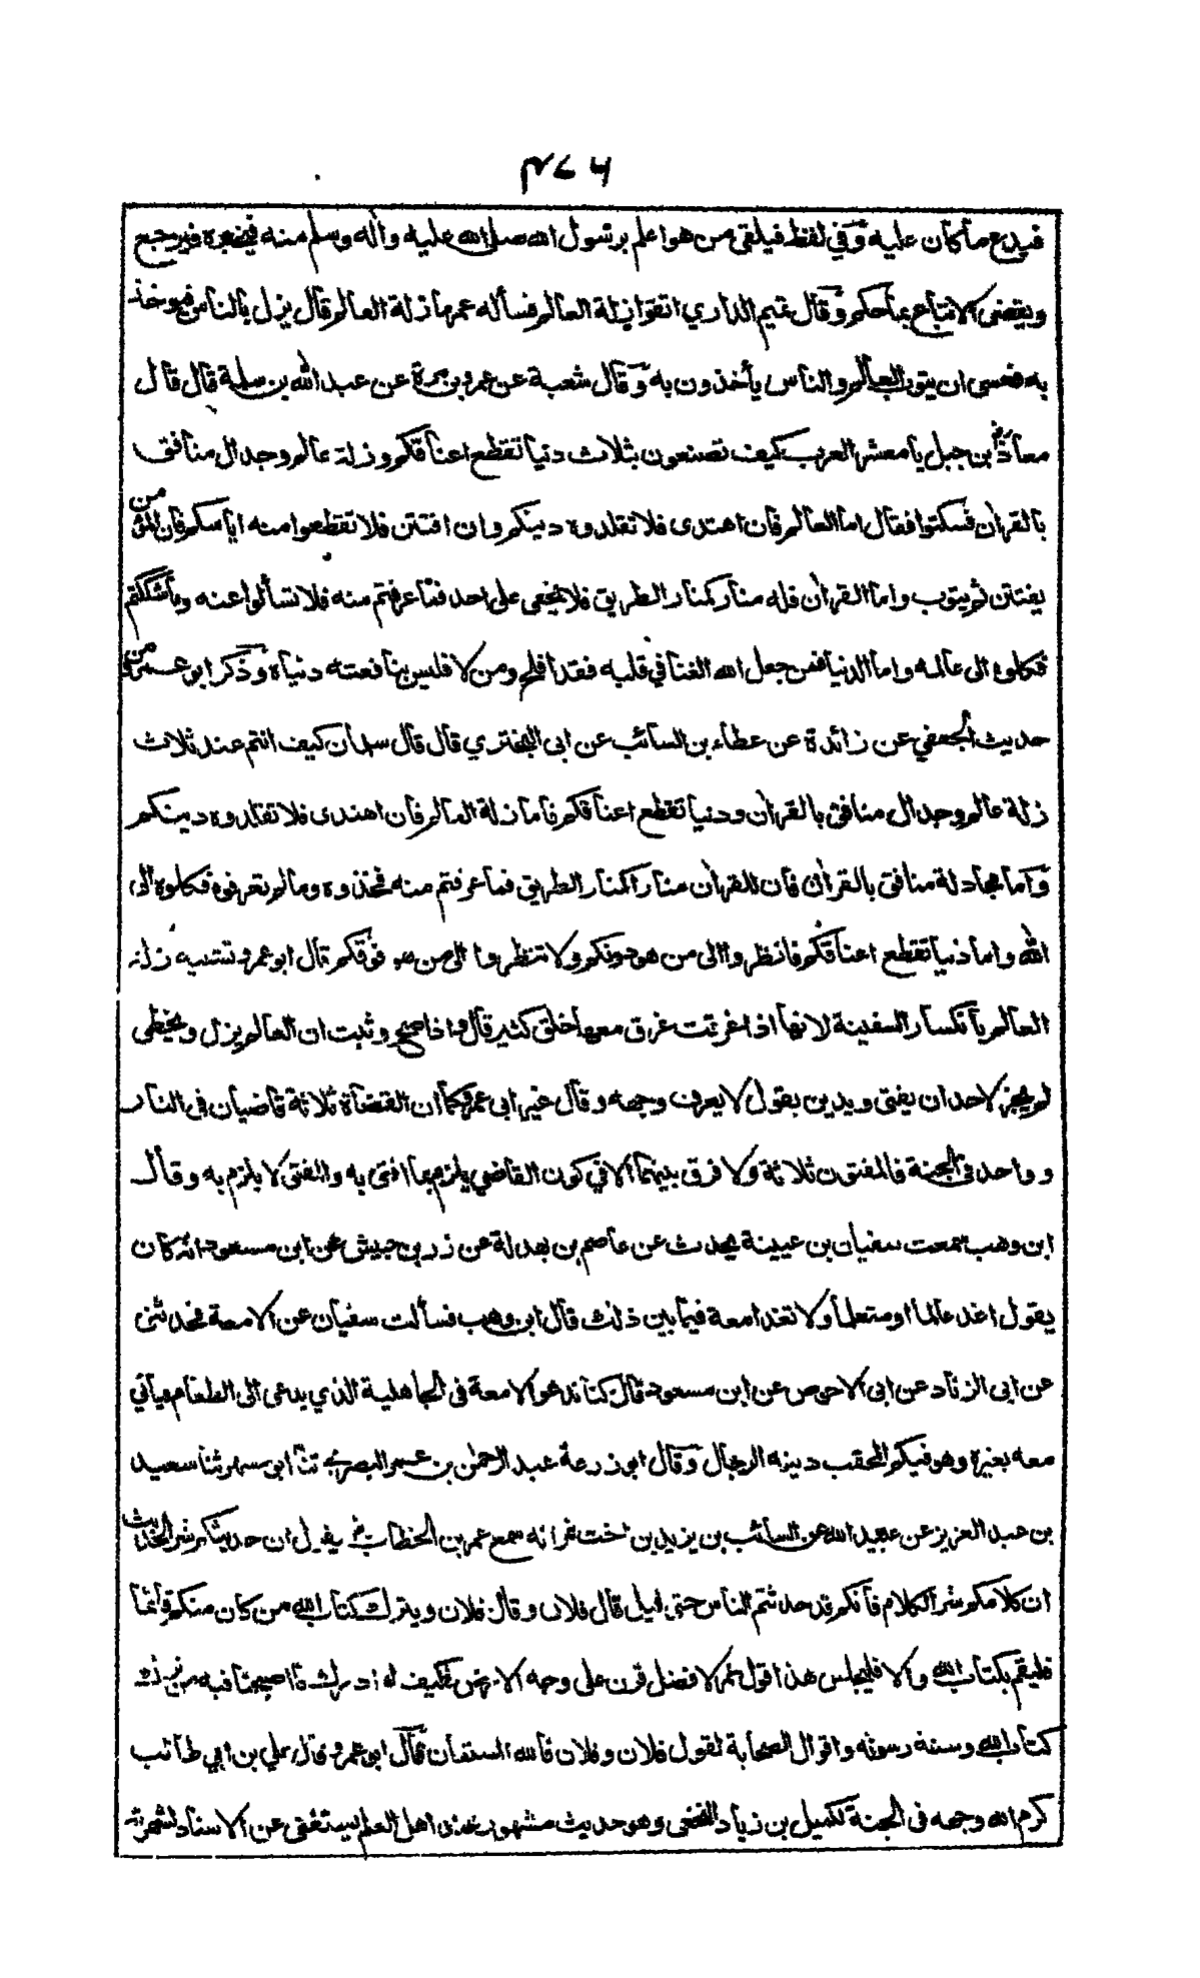 ٤٧٦
فيدع ما كان عليه وفي لفظ فيلقى من هو اعلم برسول الله صلى الله عليه وآله وسلم منه فيخبره فيرجع
ويقضى الاتباع بما حكم وقال تميم الداري اتقوا زلة العالم فسأله عمر ما زلة العالم قال يزل بالناس فيوخذ
به فعسى ان يتوب العالم والناس يأخذون به وقال شعبة عن عمرو بن مرة عن عبد الله بن سلمة قال قال
معاذ بن جبل يا معشر العرب كيف تصنعون بثلاث دنيا تقطع اعناقكم وزلة عالم وجدال منافق
بالقران فسكتوا فقال اما العالم فان اهتدى فلا تقلدوه دينكم وان افتتن فلا تقطعوا منه اياسكم فان المؤمن
يفتتن ثم يتوب واما القران فله منار كمنار الطريق فلا يخفى على احد فما عرفتم منه فلا تسألوا عنه وما شككتم
فكلوه الى عالمه واما الدنيا فمن جعل الله الغنا في قلبه فقد افلح ومن لا فليس بنافعته دنياه وذكر ابو عمر من
حديث الجعفي عن زائدة عن عطاء بن السائب عن ابى البختري قال قال سلمان كيف انتم عند ثلاث
زلة عالم وجدال منافق بالقران ودنيا تقطع اعناقكم فاما زلة العالم فان اهتدى فلا تقلدوه دينكم
واما مجادلة منافق بالقران فان للقران منارا كمنار الطريق فما عرفتم منه فخذوه وما لم تعرفوه فكلوه الى
الله واما دنيا تقطع اعناقكم فانظروا الى من هو دونكم ولا تنظروا الى من هو فوقكم قال ابو عمر وتشبيه زلة
العالم بانكسار السفينة لانها اذا غرقت غرق معها خلق كثير قال واذا صح وثبت ان العالم يزل ويخطى
لم يجز لاحد ان يفتى ويدين بقول لا يعرف وجهه وقال غير ابى عمر وكما ان القضاة ثلاثة قاضيان فى النار
وواحد فى الجنة فالمفتون ثلاثة ولا فرق بينهما الا في كون القاضي يلزم بما افتى به والمفتى لا يلزم به وقال
ابن وهب سمعت سفيان بن عيينة يحدث عن عاصم بن بهدلة عن زر بن حبيش عن ابن مسعود انه كان
يقول اغد عالما او متعلما ولا تغد امعة فيما بين ذلك قال ابن وهب فسألت سفيان عن الامعة فحدثنى
عن ابى الزناد عن ابى الاحوص عن ابن مسعود قال كنا ندعو الامعة فى الجاهلية الذي يدعى الى الطعام فيأتي
معه بغيره وهو فيكم المحقب دينه الرجال وقال ابو زرعة عبد الرحمن بن عمر البصري ثنا ابو مسهر ثنا سعيد
بن عبد العزيز عن عبيد الله عن السائب بن يزيد بن اخت نمر انه سمع عمر بن الخطاب يقول ان حديثكم شر الحديث
ان كلامكم شر الكلام فانكم قد حدثتم الناس حتى قيل قال فلان وقال فلان ويترك كتاب الله من كان منكم قائما
فليقم بكتاب الله والا فليجلس هذا قول عمر لافضل قرن على وجه الارض فكيف لو ادرك ما اصبحنا فيه من ترك
كتاب الله وسنة رسوله واقوال الصحابة لقول فلان وفلان فالله المستعان قال ابو عمر وقال علي بن ابي طالب
كرم الله وجهه فى الجنة لكميل بن زياد النخعى وهو حديث مشهور عند اهل العلم يستغنى عن الاسناد لشهرته